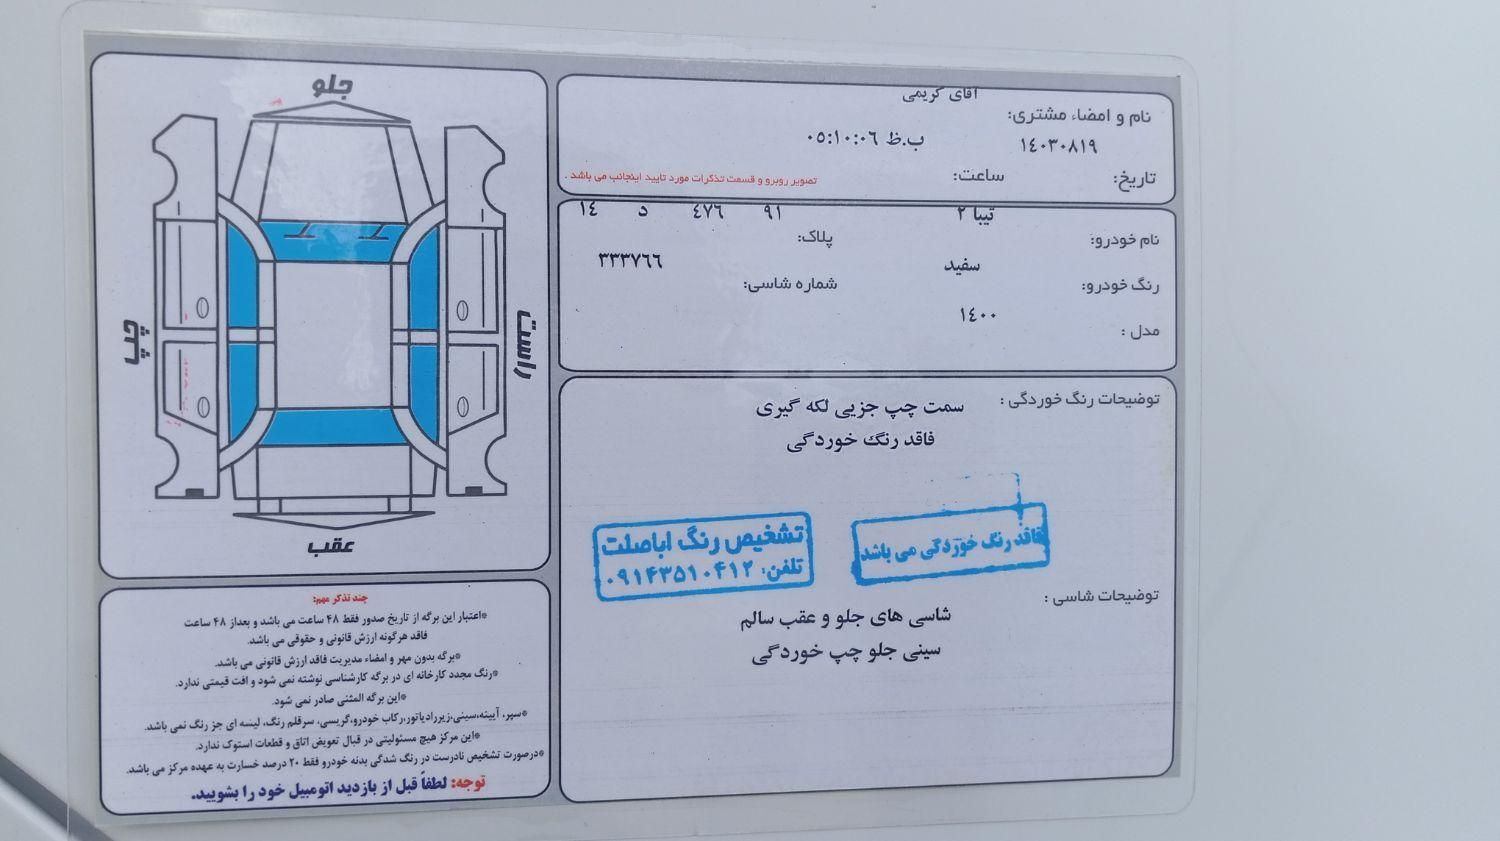 جلو
چپ
راست
عقب
آقای کریمی
نام و امضاء مشتری:
۱۴۰۳۰۸۱۹
۰۵:۱۰:۰۶ ب.ظ
تاریخ:
ساعت:
تصویر روبرو و قسمت تذکرات مورد تایید اینجانب می باشد .
تیبا ۲
۹۱ ۴۷۶ د ۱۴
نام خودرو:
پلاک:
سفید
۳۳۳۷۶۶
رنگ خودرو:
شماره شاسی:
۱۴۰۰
مدل :
توضیحات رنگ خوردگی : سمت چپ جزیی لکه گیری
فاقد رنگ خوردگی
فاقد رنگ خوردگی می باشد
تشخیص رنگ اباصلت
تلفن: ۰۹۱۴۳۵۱۰۴۱۲
توضیحات شاسی :
شاسی های جلو و عقب سالم
سینی جلو چپ خوردگی
چند تذکر مهم:
*اعتبار این برگه از تاریخ صدور فقط ۴۸ ساعت می باشد و بعداز ۴۸ ساعت
فاقد هرگونه ارزش قانونی و حقوقی می باشد.
*برگه بدون مهر و امضاء مدیریت فاقد ارزش قانونی می باشد.
*رنگ مجدد کارخانه ای در برگه کارشناسی نوشته نمی شود و افت قیمتی ندارد.
*این برگه المثنی صادر نمی شود.
*سپر، آیینه،سینی،زیررادیاتور،رکاب خودرو،گریسی، سرقلم رنگ، لیسه ای جز رنگ نمی باشد.
*این مرکز هیچ مسئولیتی در قبال تعویض اتاق و قطعات استوک ندارد.
*درصورت تشخیص نادرست در رنگ شدگی بدنه خودرو فقط ۲۰ درصد خسارت به عهده مرکز می باشد.
توجه: لطفاً قبل از بازدید اتومبیل خود را بشویید.